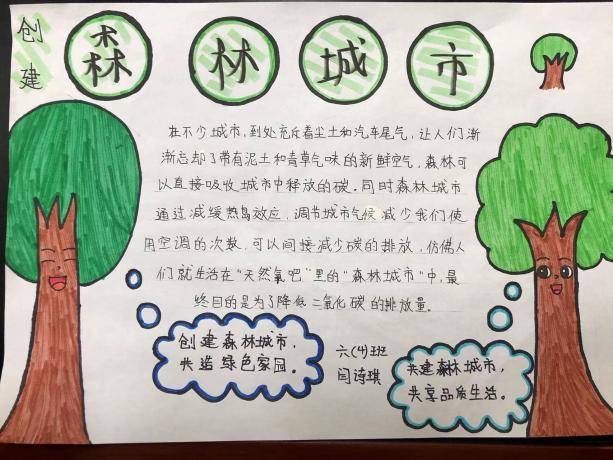 创建
森林城市
在不少城市,到处充斥着尘土和汽车尾气,让人们渐
渐忘却了带有泥土和青草气味的新鲜空气,森林可
以直接吸收城市中释放的碳。同时森林城市
通过减缓热岛效应,调节城市气候减少我们使
用空调的次数,可以间接减少碳的排放,仿佛人
们就生活在“天然氧吧”里的“森林城市”中,最
终目的是为了降低二氧化碳的排放量。
创建森林城市,
共造绿色家园。
六(4)班
闫诗琪
共建森林城市,
共享品质生活。